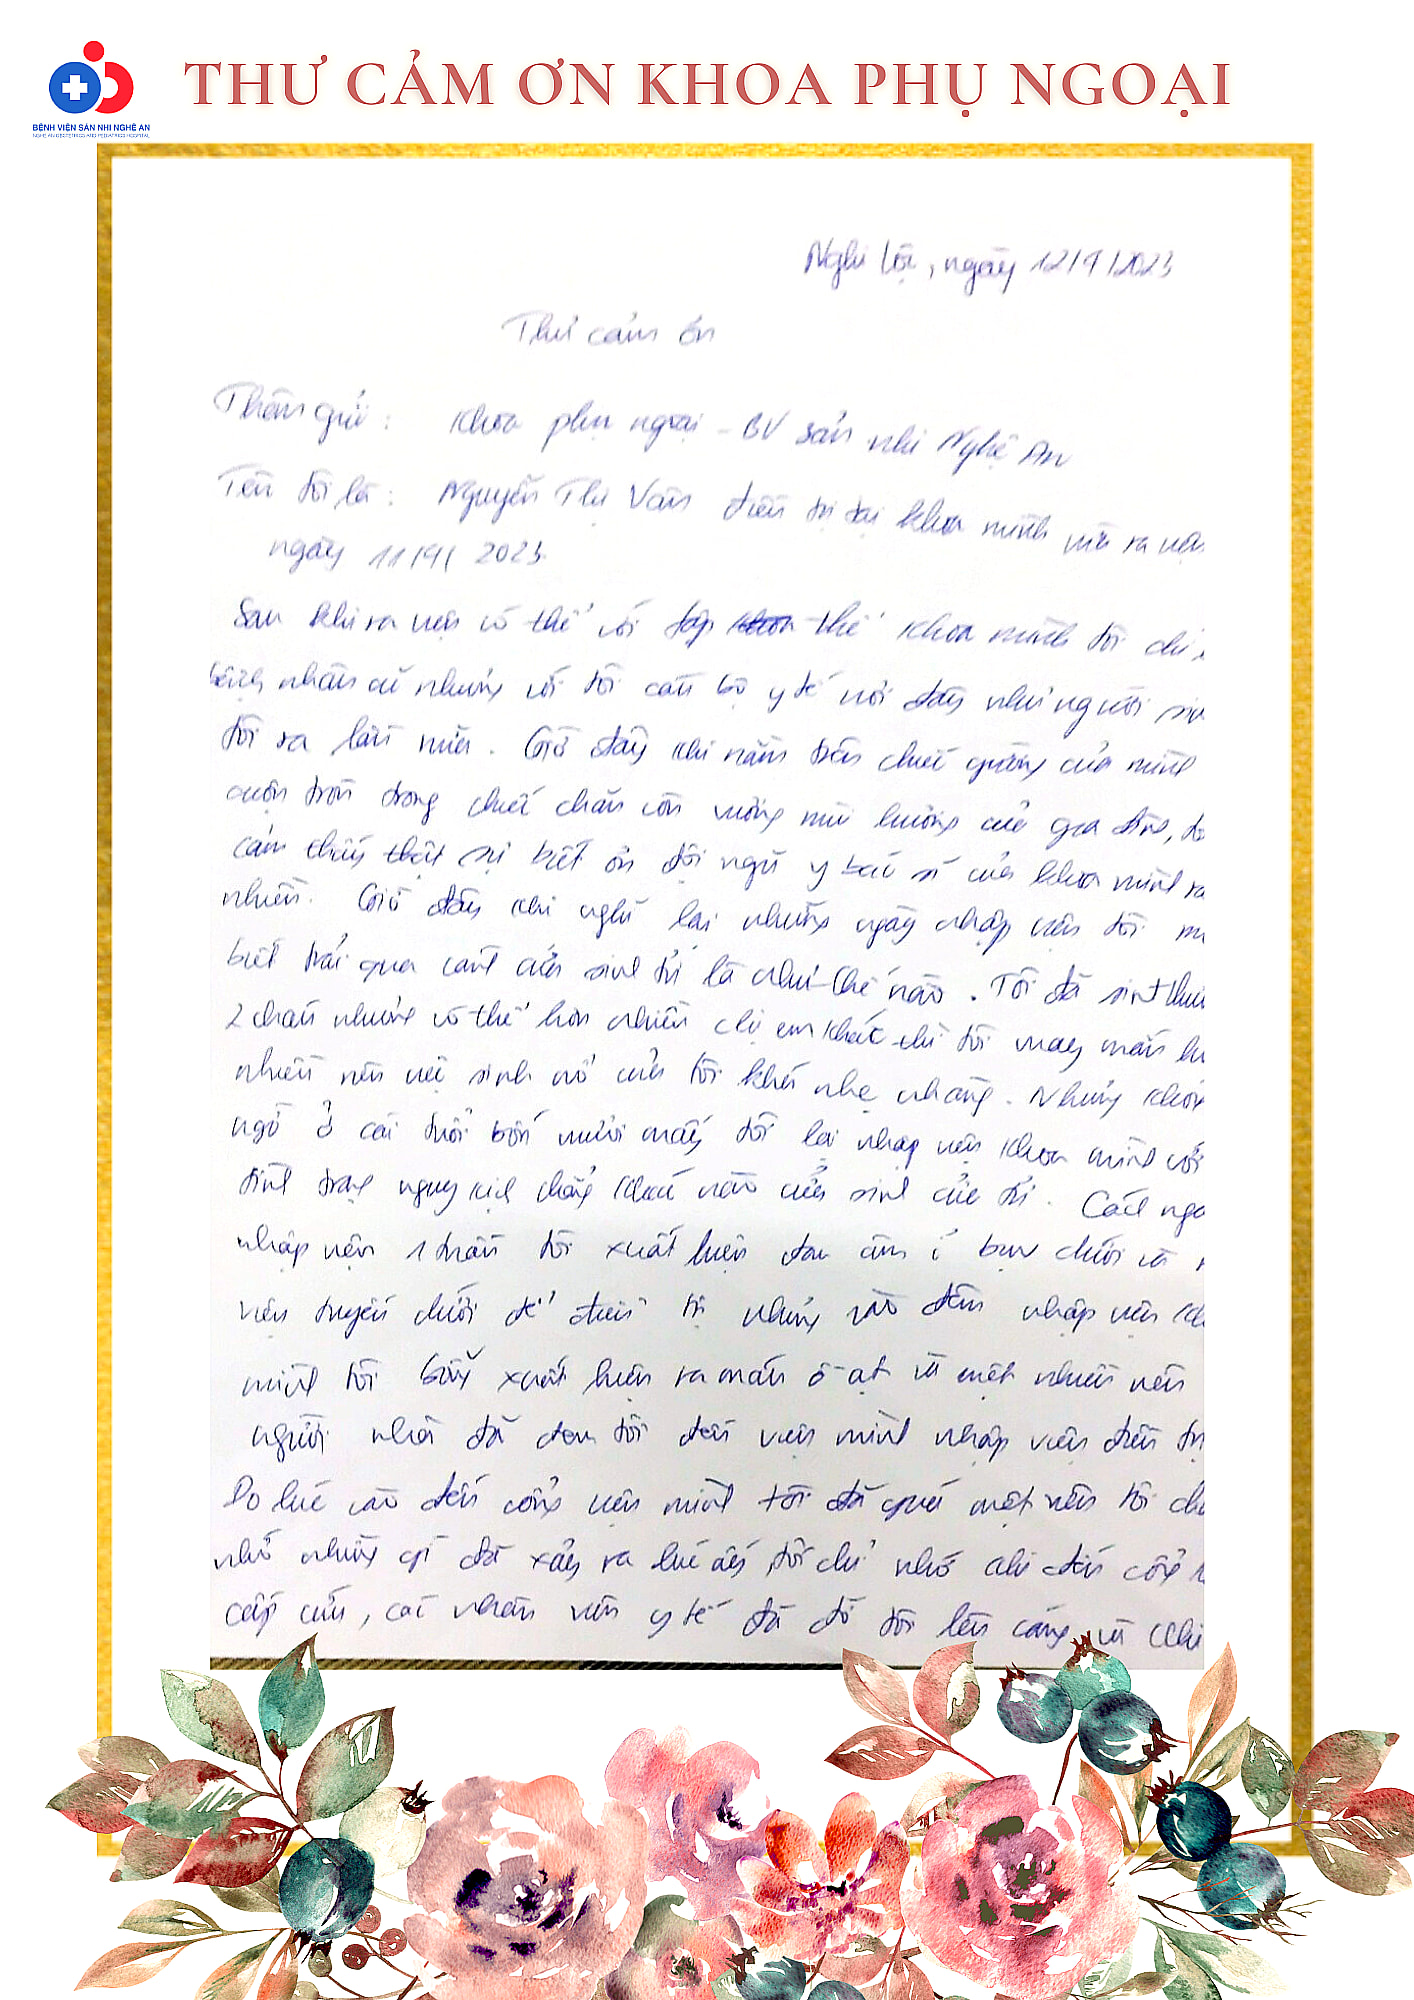 THƯ CẢM ƠN KHOA PHỤ NGOẠI
BỆNH VIỆN SẢN NHI NGHỆ AN
NGHE AN OBSTETRICS AND PEDIATRICS HOSPITAL
Nghi Lộc, ngày 12/9/2023
Thư cảm ơn
Thân gửi: Khoa phụ ngoại - BV sản nhi Nghệ An
Tên tôi là: Nguyễn Thị Vân điều trị tại khoa mình vừa ra viện
ngày 11/9/2023
Sau khi ra viện có thể với tập thể khoa mình tôi chỉ
bệnh nhân cũ nhưng với tôi cán bộ y tế nơi đây như người sinh
tôi ra lần nữa. Giờ đây khi nằm trên chiếc giường của mình
cuộn tròn trong chiếc chăn còn vương mùi hương của gia đình,
cảm thấy thật sự biết ơn đội ngũ y bác sĩ của khoa mình
nhiều. Giờ đây khi nghĩ lại những ngày nhập viện tôi
biết trải qua cảnh cửa sinh tử là như thế nào. Tôi đã sinh
2 cháu nhưng có thể hơn nhiều chị em khác thì tôi may mắn
nhiều nên việc sinh nở của tôi khá nhẹ nhàng. Nhưng không
ngờ ở cái tuổi bốn mươi mấy tôi lại nhập viện khoa mình với
tình trạng nguy kịch chẳng khác nào cửa sinh cửa tử. Cách
nhập viện 1 tuần tôi xuất hiện đau âm ỉ bụng dưới và
viện tuyến dưới để điều trị nhưng vào đêm nhập viện
mình tôi bỗng xuất hiện ra máu ồ ạt và mệt nhiều nên
người nhà đã đem tôi đến viện mình nhập viện điều trị
Do lúc vào đến cổng viện mình tôi đã quá mệt nên tôi
nhớ những gì đã xảy ra lúc ấy, tôi chỉ nhớ khi đến cổng
cấp cứu, các nhân viên y tế đã đỡ tôi lên cáng và